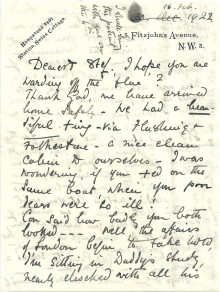 16. Feb.
Hampstead Tube
Station Swiss Cottage.
Fitzjohn's Avenue,
1922
N.W.3.
Dearest Stef, I hope you are
warding off the 'blue'?
Thank God, we have arrived
home safely. We had a
-tiful trip via Flushing &
Folkestone - a nice clean
cabin to ourselves - I was
wondering if you two on the
same boat when you poor
dears were 'so ill'.
Con said how badly you both
looked ---- Well the affairs
of London begin to take hold
I'm sitting in Daddy's study,
nearly choked with all his